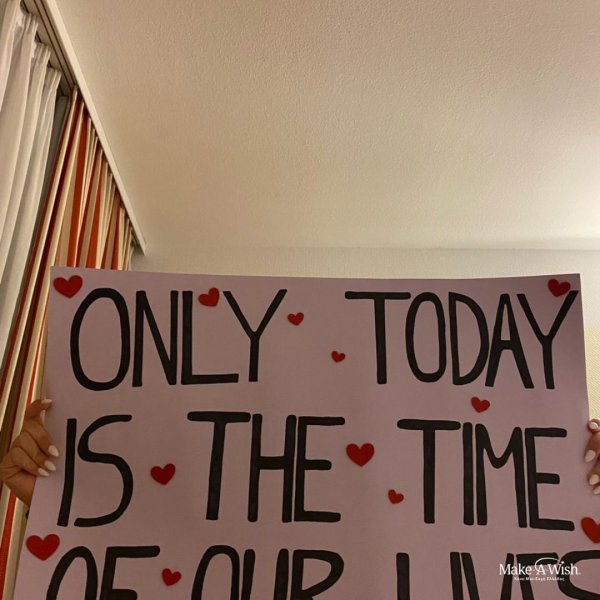 ONLY TODAY
IS THE TIME
OF OUR LIVES
Make-A-Wish.
Κάνε-Μια-Ευχή Ελλάδος